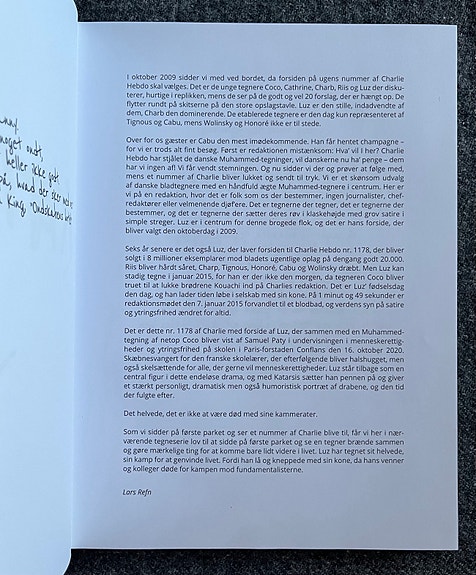 nny.
noget ondt
heller ikke godt
på, hvad der sker ved
King: Ondskaben
I oktober 2009 sidder vi med ved bordet, da forsiden på ugens nummer af Charlie
Hebdo skal vælges. Det er de unge tegnere Coco, Cathrine, Charb, Riis og Luz der disku-
terer, hurtige i replikken, mens de ser på de godt og vel 20 forslag, der er hængt op. De
flytter rundt på skitserne på den store opslagstavle. Luz er den stille, indadvendte af
dem, Charb den dominerende. De etablerede tegnere er den dag kun repræsenteret af
Tignous og Cabu, mens Wolinsky og Honoré ikke er til stede.
Over for os gæster er Cabu den mest imødekommende. Han får hentet champagne –
for vi er trods alt fint besøg. Først er redaktionen mistænksom: Hva' vil I her? Charlie
Hebdo har stjålet de danske Muhammed-tegninger, vil danskerne nu ha' penge – dem
har vi ingen af! Vi får vendt stemningen. Og nu sidder vi der og prøver at følge med,
mens et nummer af Charlie bliver lukket og sendt til tryk. Vi er et skønsom udvalg
af danske bladtegnere med en håndfuld ægte Muhammed-tegnere i centrum. Her er
vi på en redaktion, hvor det er folk som os der bestemmer, ingen journalister, chef-
redaktører eller velmenende djøfere. Det er tegnerne der tegner, det er tegnerne der
bestemmer, og det er tegnerne der sætter deres røv i klaskehøjde med grov satire i
simple streger. Luz er i centrum for denne brogede flok, og det er hans forside, der
bliver valgt den oktoberdag i 2009.
Seks år senere er det også Luz, der laver forsiden til Charlie Hebdo nr. 1178, der bliver
solgt i 8 millioner eksemplarer mod bladets ugentlige oplag på dengang godt 20.000.
Riis bliver hårdt såret, Charp, Tignous, Honoré, Cabu og Wolinsky dræbt. Men Luz kan
stadig tegne i januar 2015, for han er der ikke den morgen, da tegneren Coco bliver
truet til at lukke brødrene Kouachi ind på Charlies redaktion. Det er Luz' fødselsdag
den dag, og han lader tiden løbe i selskab med sin kone. På 1 minut og 49 sekunder er
redaktionsmødet den 7. januar 2015 forvandlet til et blodbad, og verdens syn på satire
og ytringsfrihed ændret for altid.
Det er dette nr. 1178 af Charlie med forside af Luz, der sammen med en Muhammed-
tegning af netop Coco bliver vist af Samuel Paty i undervisningen i menneskerettig-
heder og ytringsfrihed på skolen i Paris-forstaden Conflans den 16. oktober 2020.
Skæbnesvangert for den franske skolelærer, der efterfølgende bliver halshugget, men
også skelsættende for alle, der gerne vil menneskerettighederne. Luz står tilbage som en
central figur i dette endeløse drama, og med Katarsis sætter han pennen på og giver
et stærkt personligt, dramatisk men også humoristisk portræt af drabene, og den tid
der fulgte efter.
Det helvede, det er ikke at være død med sine kammerater.
Som vi sidder på første parket og ser et nummer af Charlie blive til, får vi her i nær-
værende tegneserie lov til at sidde på første parket og se en tegner brænde sammen
og gøre mærkelige ting for at komme bare lidt videre i livet. Luz har tegnet sit helvede,
sin kamp for at genvinde livet. Fordi han lå og kneppede med sin kone, da hans venner
og kolleger døde for kampen mod fundamentalisterne.
Lars Refn